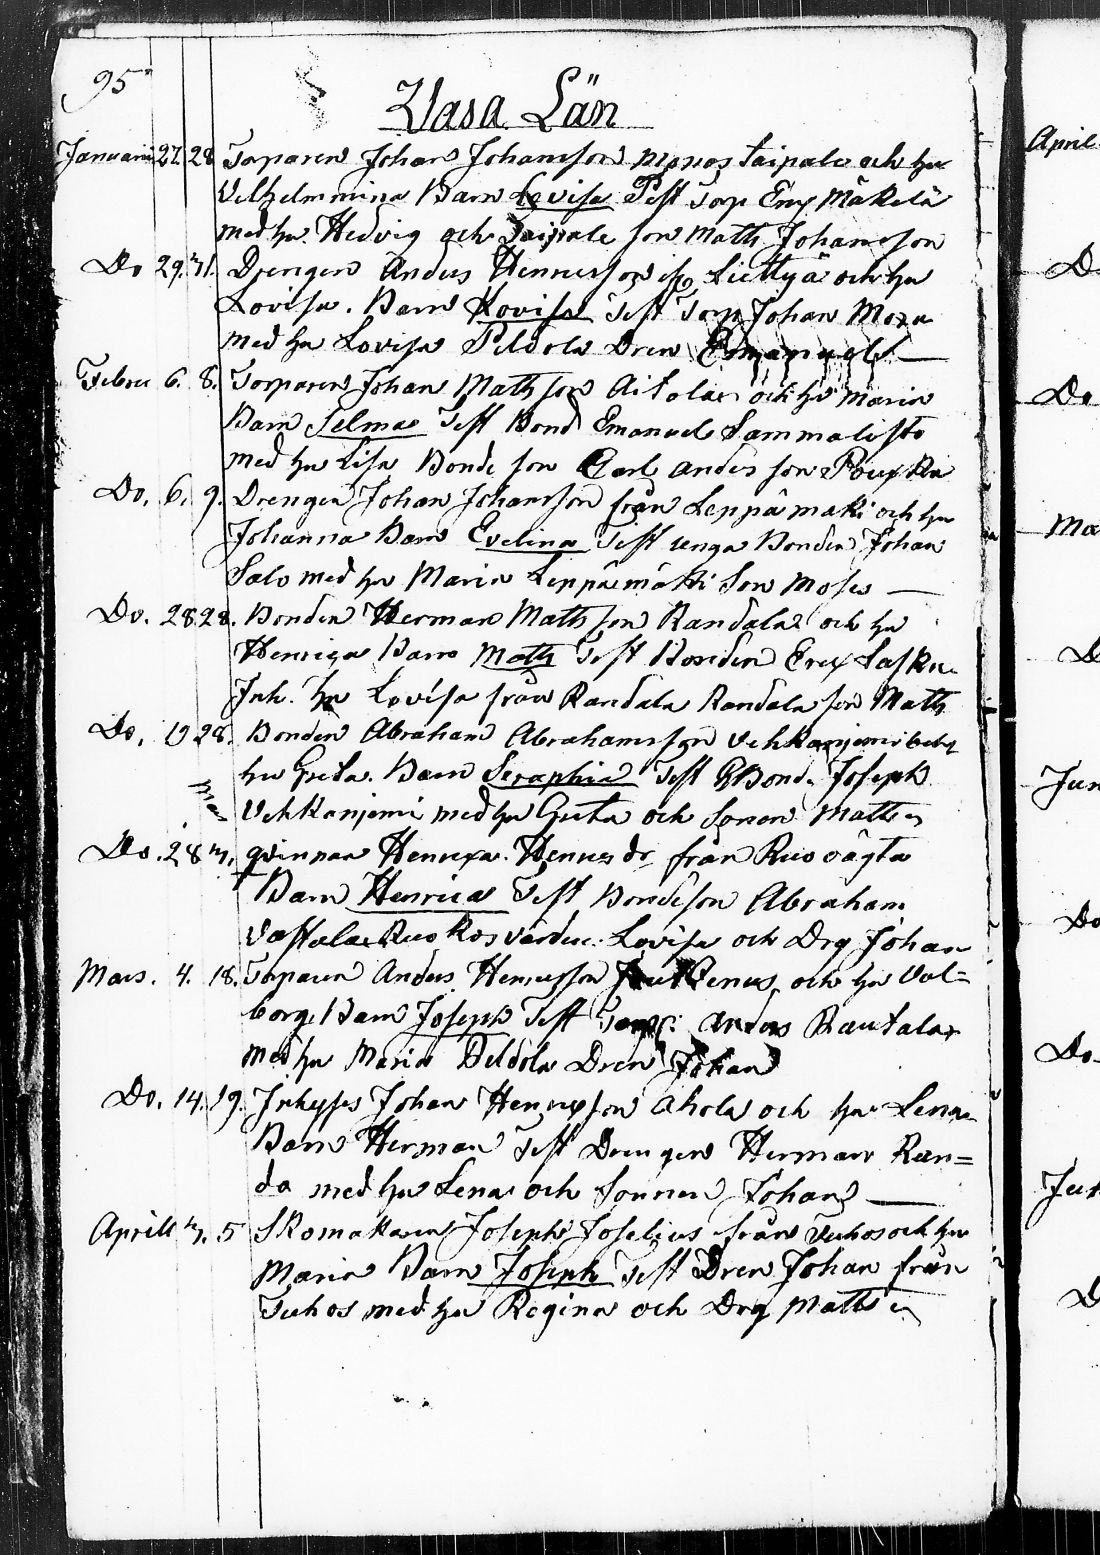 95
Vasa Län
Januari 27. 28 Torparen Johan Johansson Taipale och hu
Vilhelmmina Barn Lovisa Test Torp Erix Mäkelä
med hu. Hedvig och Taipale son Math Johansson
Do 29. 31. Drengen Andus Henrisson Liettyä och hu
Lovisa. Barn Lovisa Test Torp Johan
med hu Lovisa Peldola Dren Emanuel —
Febru 6. 8. Torparen Johan Mathson Aitola och hu Maria
Barn Selma Test Bond Emanuel Sammalisto
med hu Lisa Bonde son Carl Anders son
Do. 6. 9. Drengen Johan Johansson från Leppämäki och hu
Johanna Barn Evelina Test unga Bonden Johan
Salo med hu Maria Leppämäki Son Moses —
Do. 28. 28. Bonden Herman Mathson Randala och hu
Henrica Barn Math Test Bonden Erex
Inh. hu Lovisa från Randala Randala son Math
Do. 19 28. Bonden Abraham Abrahamsson och
hu Greta. Barn Seraphia Test Bond. Joseph
Vehkanjemi med hu Greta och Sonen Matts
Mar
Do. 28 3. qvinnan Henrixa. Henrix dr från
Barn Henrica Test Bondeson Abraham
Lovisa och Drg Johan
Mars. 4. 18. Torparen Andus Henrisson och hu Val=
borg. Barn Joseph Test Torp: Anders Rautala
med hu Maria Peldola Dren Johan
Do. 14. 19. Inhyses Johan Henrixson Ahola och hu Lena
Barn Herman Test Drengen Herman Ran=
da med hu Lena och Sonnen Johan —
Aprill 3. 5 Skomakaren Joseph Joselius från Tuhos och hu
Maria Barn Joseph Test Dren Johan från
Tuhos med hu Regina och Drg Matts
April
D
Do
Ma
D
Jun
Do
Do
Jun
D